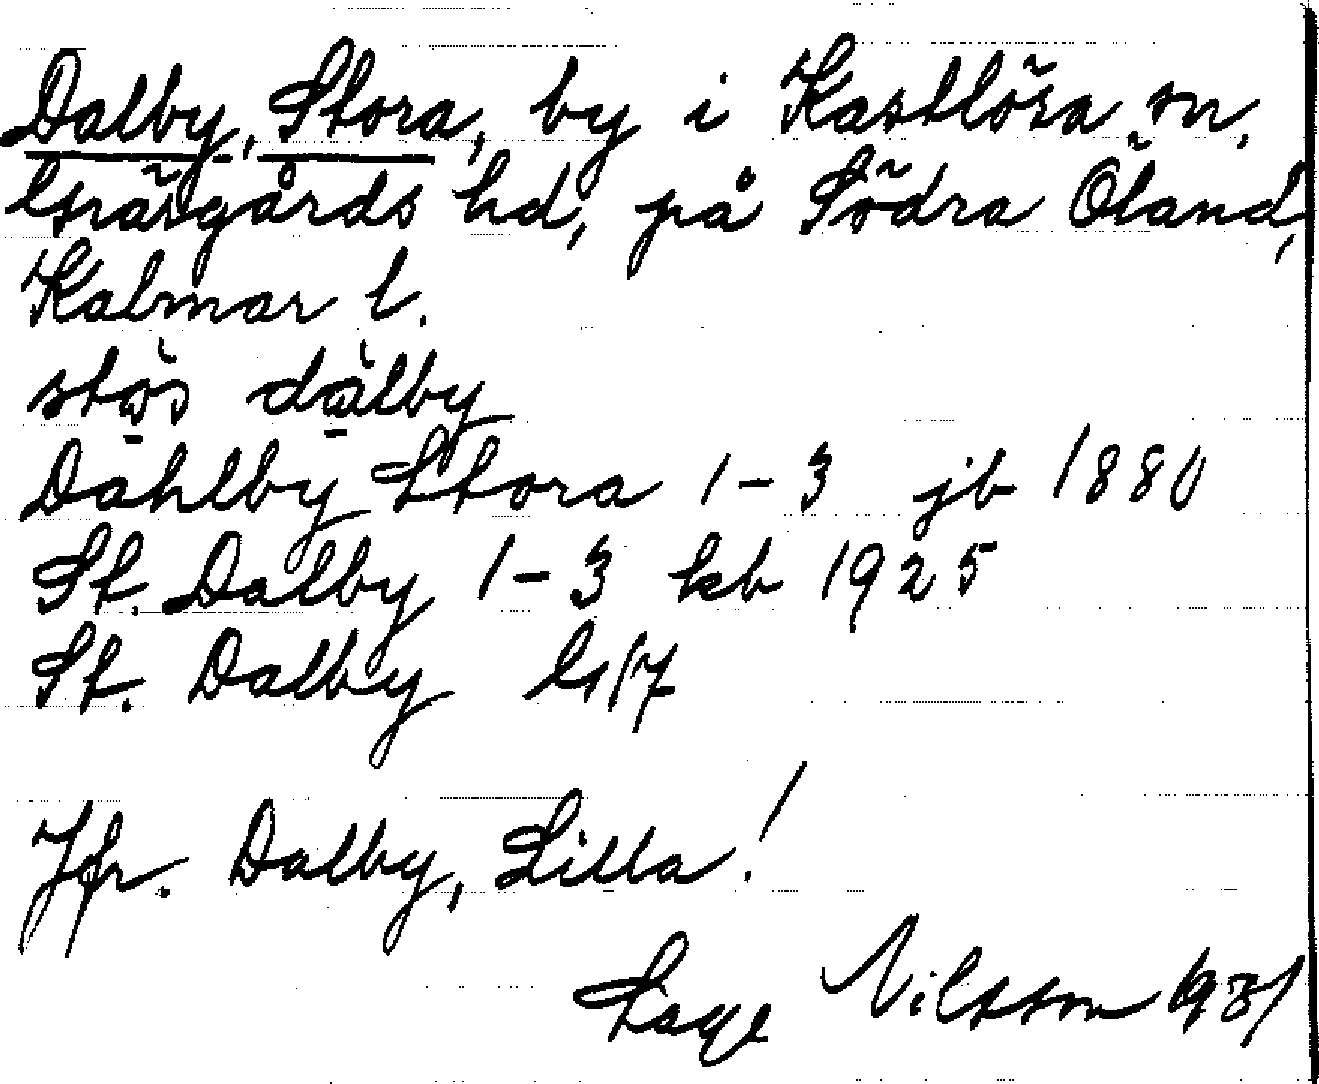 Dalby, Stora, by i Kastlösa sn.
Gräsgårds hd, på Södra Öland,
Kalmar l.
dalby
Dahlby Stora 1-3 jb 1880
St. Dalby 1-3 kb 1925
St. Dalby
Jfr. Dalby, Lilla!
Sage Nilsson 1931